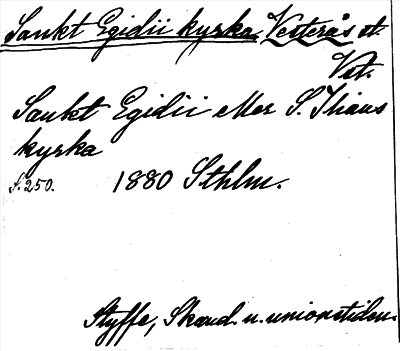 Sankt Egidii kyrka, Vesterås st.
Vst.
Sankt Egidii eller S. Ilians
kyrka
s. 250. 1880 Sthlm.
Styffe, Skand. u. unionstiden.